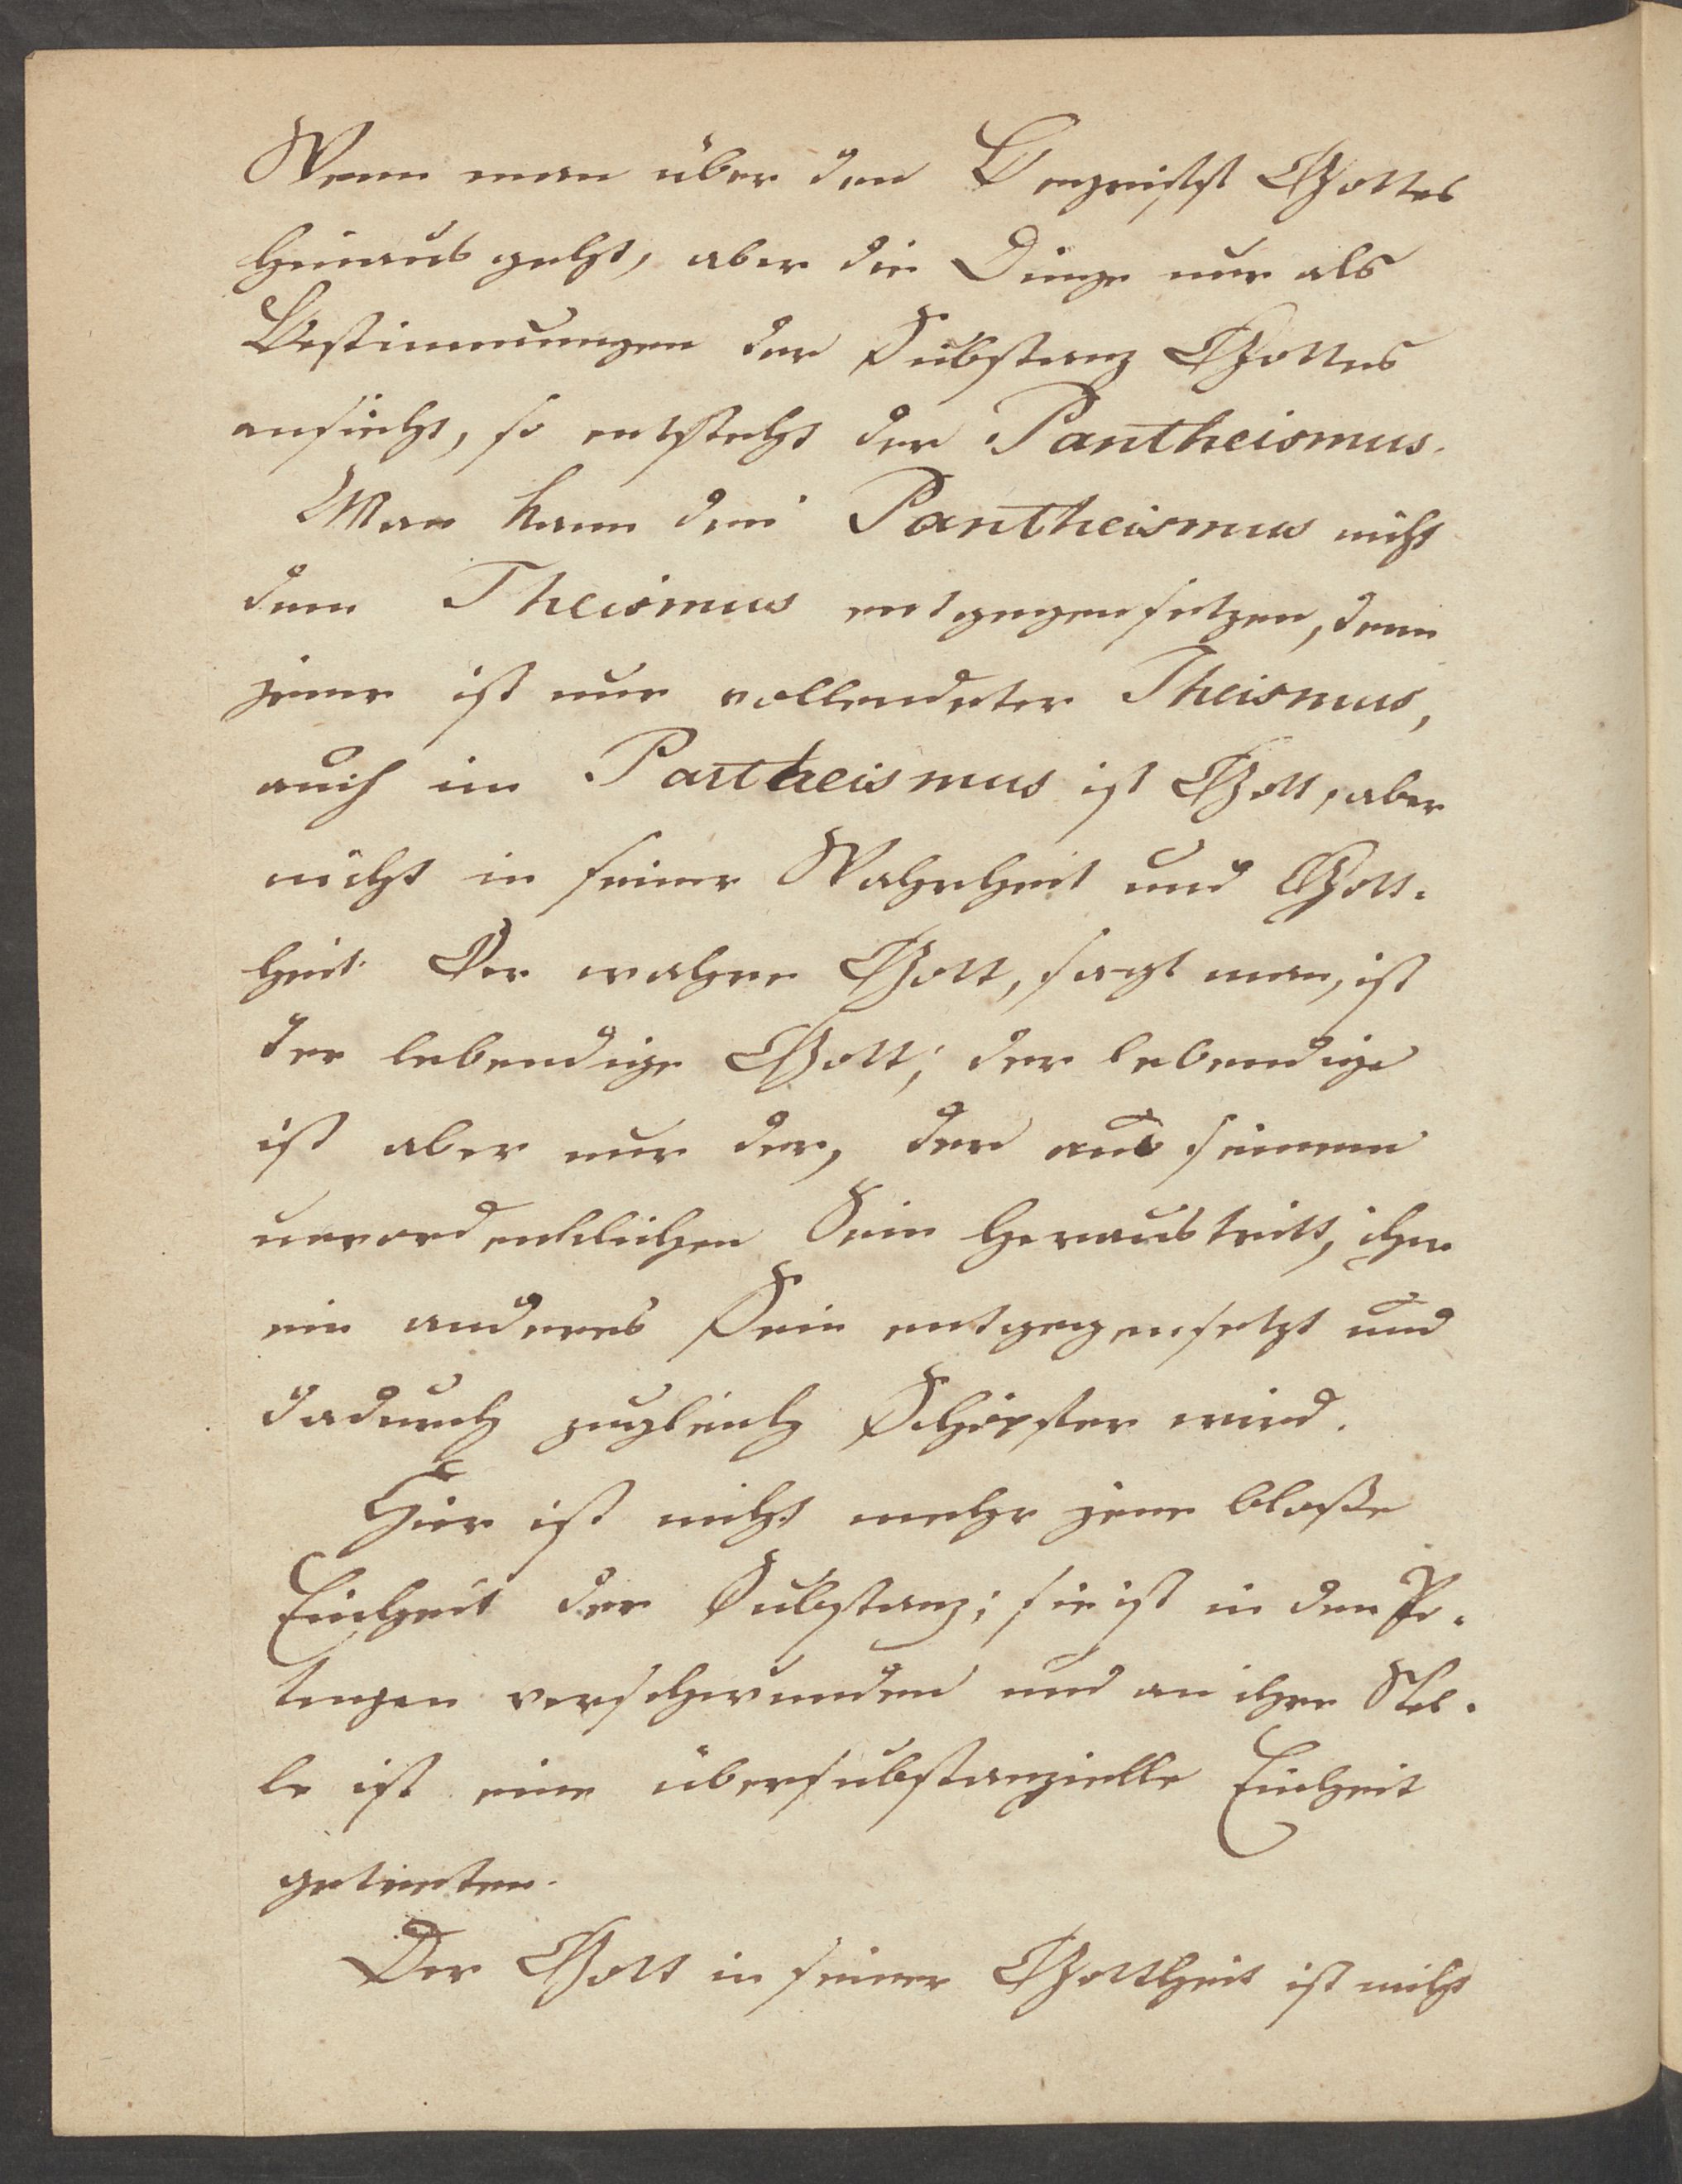 Wenn man über den Begriff Gottes
hinausgeht, aber die Dinge nur als
Bestimmungen der Substanz Gottes
ansieht, so entsteht der Pantheismus.
Man kann den Pantheismus nicht
dem Theismus entgegensetzen, denn
jener ist nur vollendeter Theismus,
auch im Pantheismus ist Gott, aber
nicht in seiner Wahrheit und Gott-
heit. Der wahre Gott, sagt man, ist
der lebendige Gott; der lebendige
ist aber nur der, der aus seinem
unvordenklichen Sein heraustritt, ihm
ein anderes Sein entgegensetzt und
dadurch zugleich Schöpfer wird.
Hier ist nicht mehr jene bloße
Einheit der Substanz; sie ist in den Po-
tenzen verschwunden und an ihre Stel-
le ist eine übersubstanzielle Einheit
getreten.
Der Gott in seiner Gottheit ist nicht